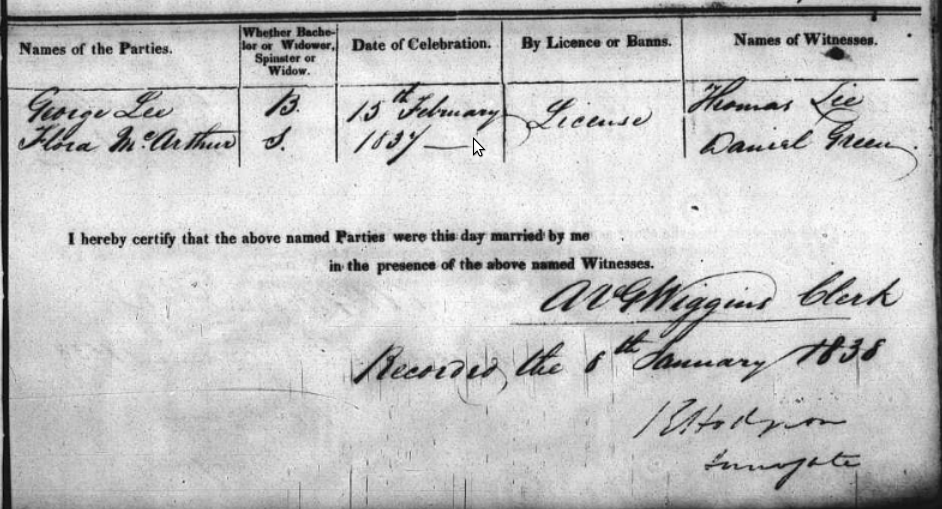 Names of the Parties.
Whether Bache-
lor or Widower,
Spinster or
Widow.
Date of Celebration.
By Licence or Banns.
Names of Witnesses.
George Lee
B.
15th February
License
Thomas Lee
Flora McArthur
S.
1837
Daniel Green
I hereby certify that the above named Parties were this day married by me
in the presence of the above named Witnesses.
A V G Wiggins Clerk
Recorded, the 6th January 1838
Hodgson
Surrogate